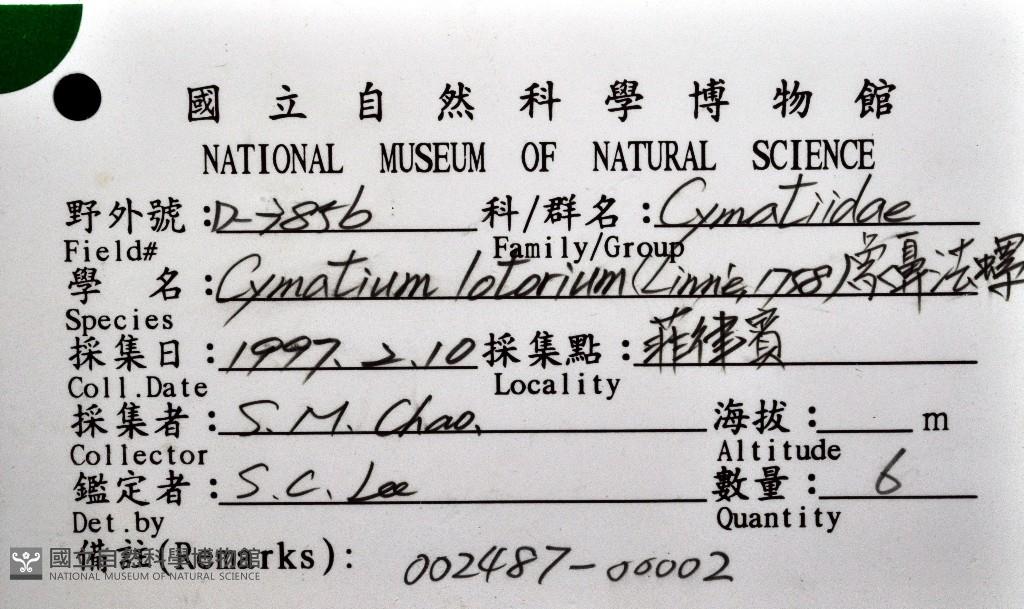 國立自然科學博物館
NATIONAL MUSEUM OF NATURAL SCIENCE
野外號:D-7856 科/群名:Cymatiidae
Field# Family/Group
學 名:Cymatium lotorium (Linné, 1758) 象鼻法螺
Species
採集日:1997.2.10 採集點:菲律賓
Coll.Date Locality
採集者:S.M. Chao. 海拔: m
Collector Altitude
鑑定者:S.C. Lee 數量:6
Det.by Quantity
備註(Remarks): 002487-00002
國立自然科學博物館
NATIONAL MUSEUM OF NATURAL SCIENCE